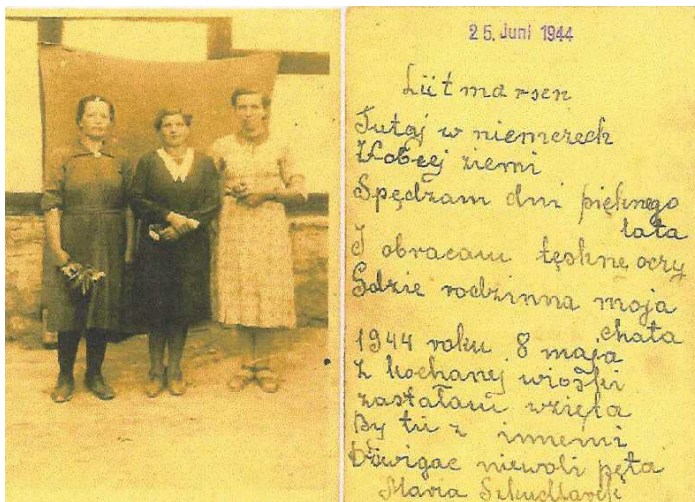 25. Juni 1944
Lütmarsen
Tutaj w niemczech
W obcej ziemi
Spędzam dni pięknego
lata
I obracam tęskne oczy
Gdzie rodzinna moja
chata
1944 roku 8 maja
Z kochanej wioski
zastałam wzięta
By tu z innemi
Dzwigac niewoli pęta
Maria